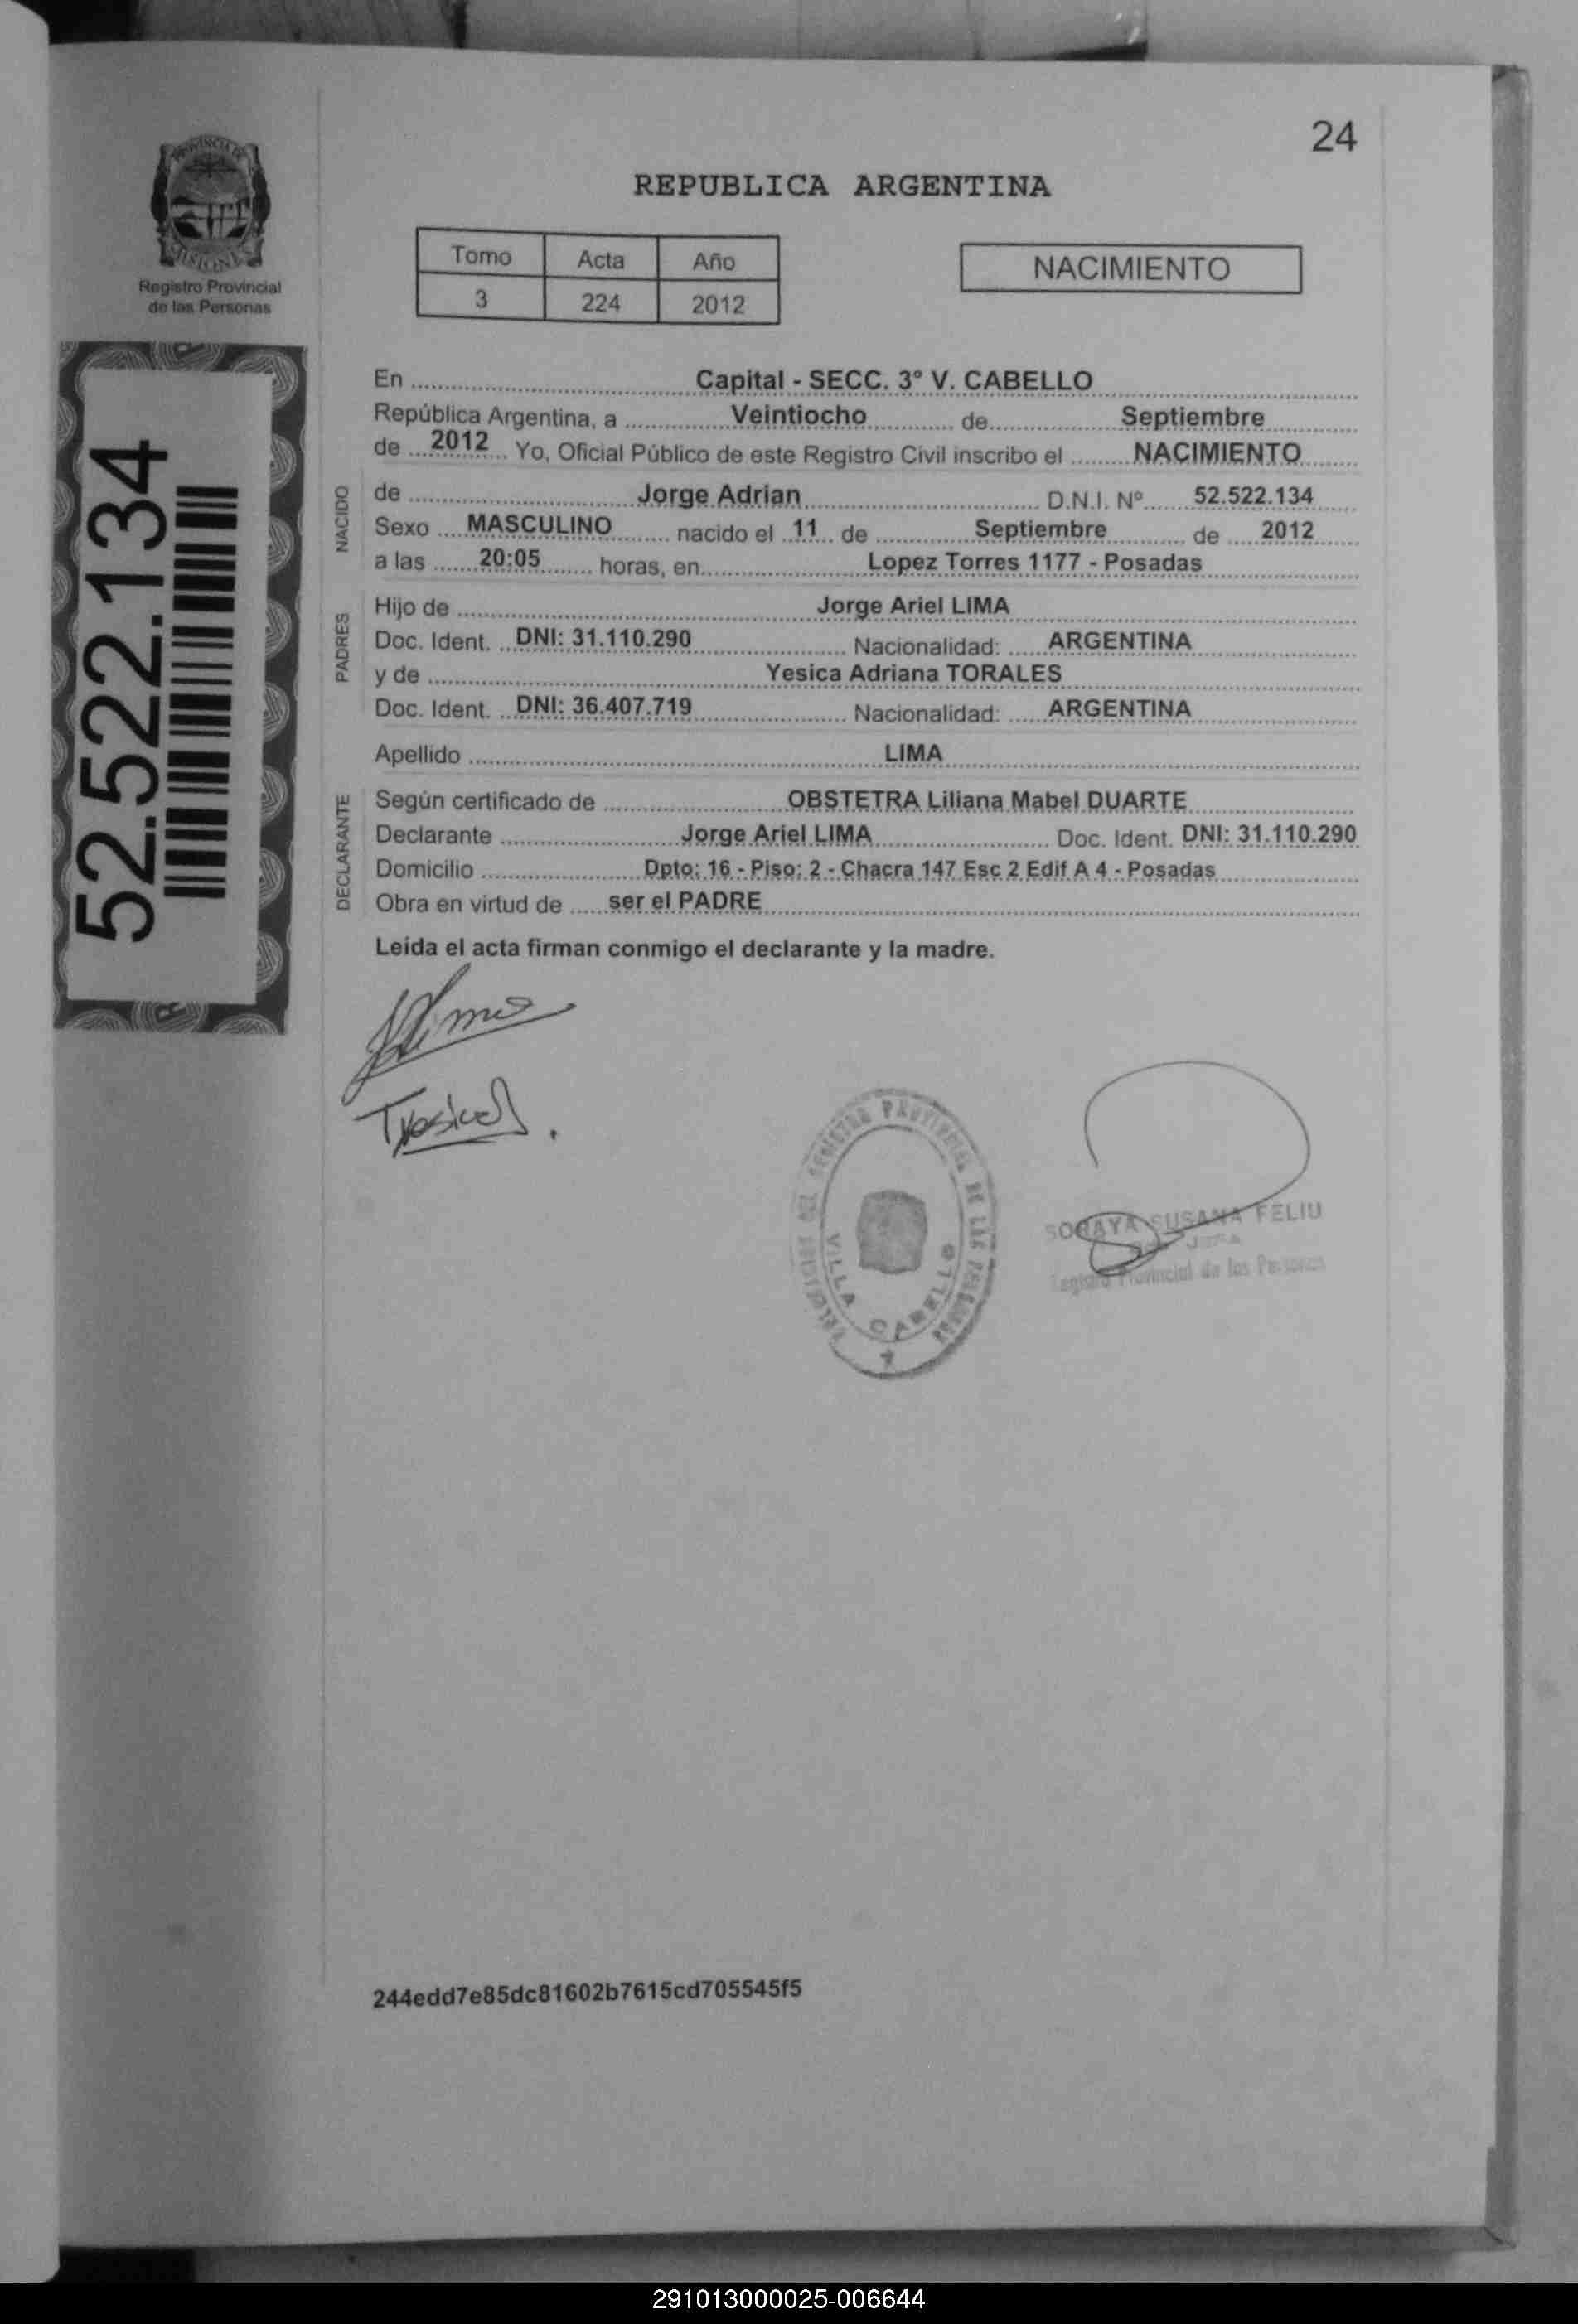 24
PROVINCIA DE
MISIONES
Registro Provincial
de las Personas
REPUBLICA ARGENTINA
Tomo Acta Año
3 224 2012
NACIMIENTO
52.522.134
En Capital - SECC. 3° V. CABELLO
República Argentina, a Veintiocho de Septiembre
de 2012 Yo, Oficial Público de este Registro Civil inscribo el NACIMIENTO
NACIDO
de Jorge Adrian D.N.I. Nº 52.522.134
Sexo MASCULINO nacido el 11 de Septiembre de 2012
a las 20:05 horas, en Lopez Torres 1177 - Posadas
PADRES
Hijo de Jorge Ariel LIMA
Doc. Ident. DNI: 31.110.290 Nacionalidad: ARGENTINA
y de Yesica Adriana TORALES
Doc. Ident. DNI: 36.407.719 Nacionalidad: ARGENTINA
Apellido LIMA
DECLARANTE
Según certificado de OBSTETRA Liliana Mabel DUARTE
Declarante Jorge Ariel LIMA Doc. Ident. DNI: 31.110.290
Domicilio Dpto: 16 - Piso: 2 - Chacra 147 Esc 2 Edif A 4 - Posadas
Obra en virtud de ser el PADRE
Leída el acta firman conmigo el declarante y la madre.
REGISTRO PROVINCIAL DE LAS PERSONAS
VILLA CABELLO
SORAYA SUSANA FELIU
Registro Provincial de las Personas
244edd7e85dc81602b7615cd705545f5
291013000025-006644